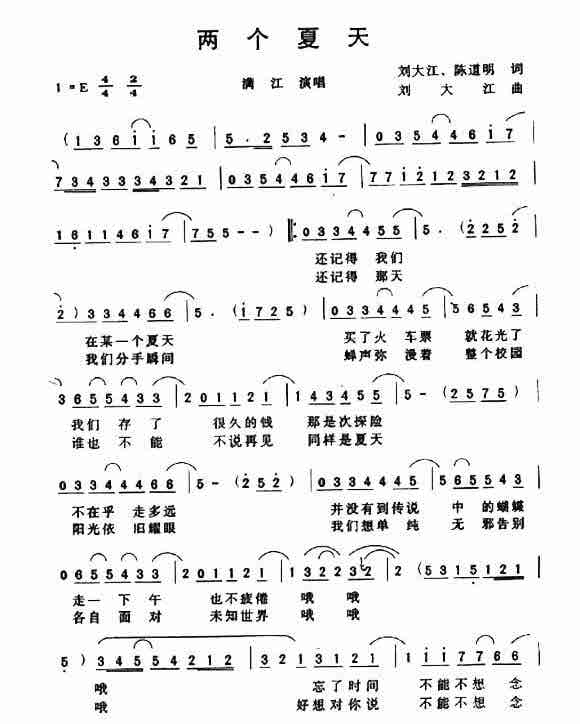 两个夏天
1=E 4/4 2/4 满江 演唱
刘大江、陈道明 词
刘大江 曲
(1 3 6 i i 6 5 | 5 . 2 5 3 4 - | 0 3 5 4 4 6 i 7 |
7 3 4 3 3 3 4 3 2 1 | 0 3 5 4 4 6 i 7 | 7 7 i 2 1 2 3 2 1 2 |
1 6 1 1 4 6 i 7 | 7 5 5 - - ) |: 0 3 3 4 4 5 5 | 5 . (2 2 5 2 |
还记得 我们
还记得 那天
2 ) 3 3 4 4 6 6 | 5 . (i 7 2 5 ) | 0 3 3 4 4 5 | 5 6 5 4 3 |
在某一个夏天 买了火 车票 就花光了
我们分手瞬间 蝉声弥 漫着 整个校园
3 6 5 5 4 3 3 | 2 0 1 1 2 1 | 1 4 3 4 5 5 | 5 - (2 5 7 5 ) |
我们 存了 很久的钱 那是次探险
谁也 不能 不说再见 同样是夏天
0 3 3 4 4 6 6 | 5 - (2 5 2 ) | 0 3 3 4 4 5 | 5 6 5 5 4 3 |
不在乎 走多远 并没有到传说 中 的蝴蝶
阳光依 旧耀眼 我们想单纯 无 邪告别
0 6 5 5 4 3 3 | 2 0 1 1 2 1 | 1 3 2 2 3 2 | 2 . (5 3 1 5 1 2 1 |
走一 下午 也不疲倦 哦 哦
各自 面对 未知世界 哦 哦
5 ) 3 4 5 5 4 2 1 2 | 3 2 1 3 1 2 1 | 1 i i 7 7 6 6 |
哦 忘了时间 不能不想念
哦 好想对你说 不能不想念